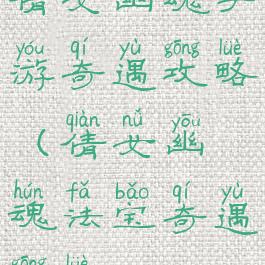 倩女幽魂手
yóu qí yù gōng lüè
游奇遇攻略
qiàn nǚ yōu
（倩女幽
hún fǎ bǎo qí yù
魂法宝奇遇
gōng lüè